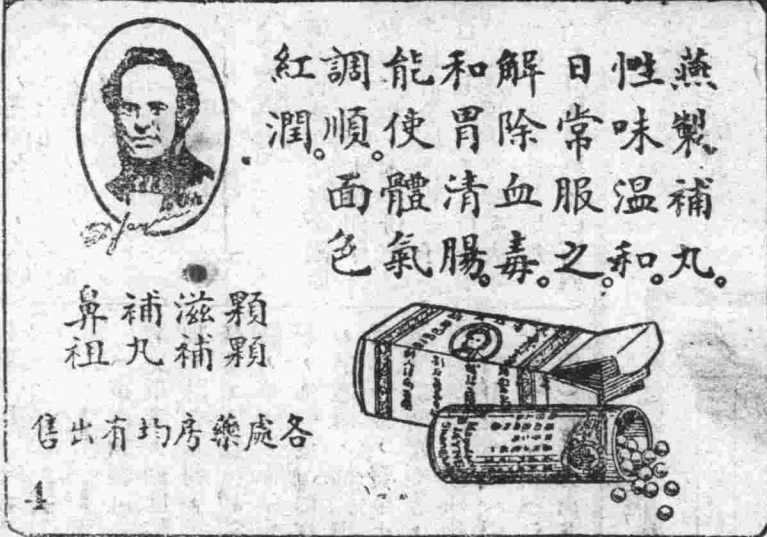 燕製補丸。
性味温和。
日常服之。
解除血毒。
和胃清腸。
能使體氣
調順。面色
紅潤。
顆顆
滋補
補丸
鼻祖
各處藥房均有出售
4